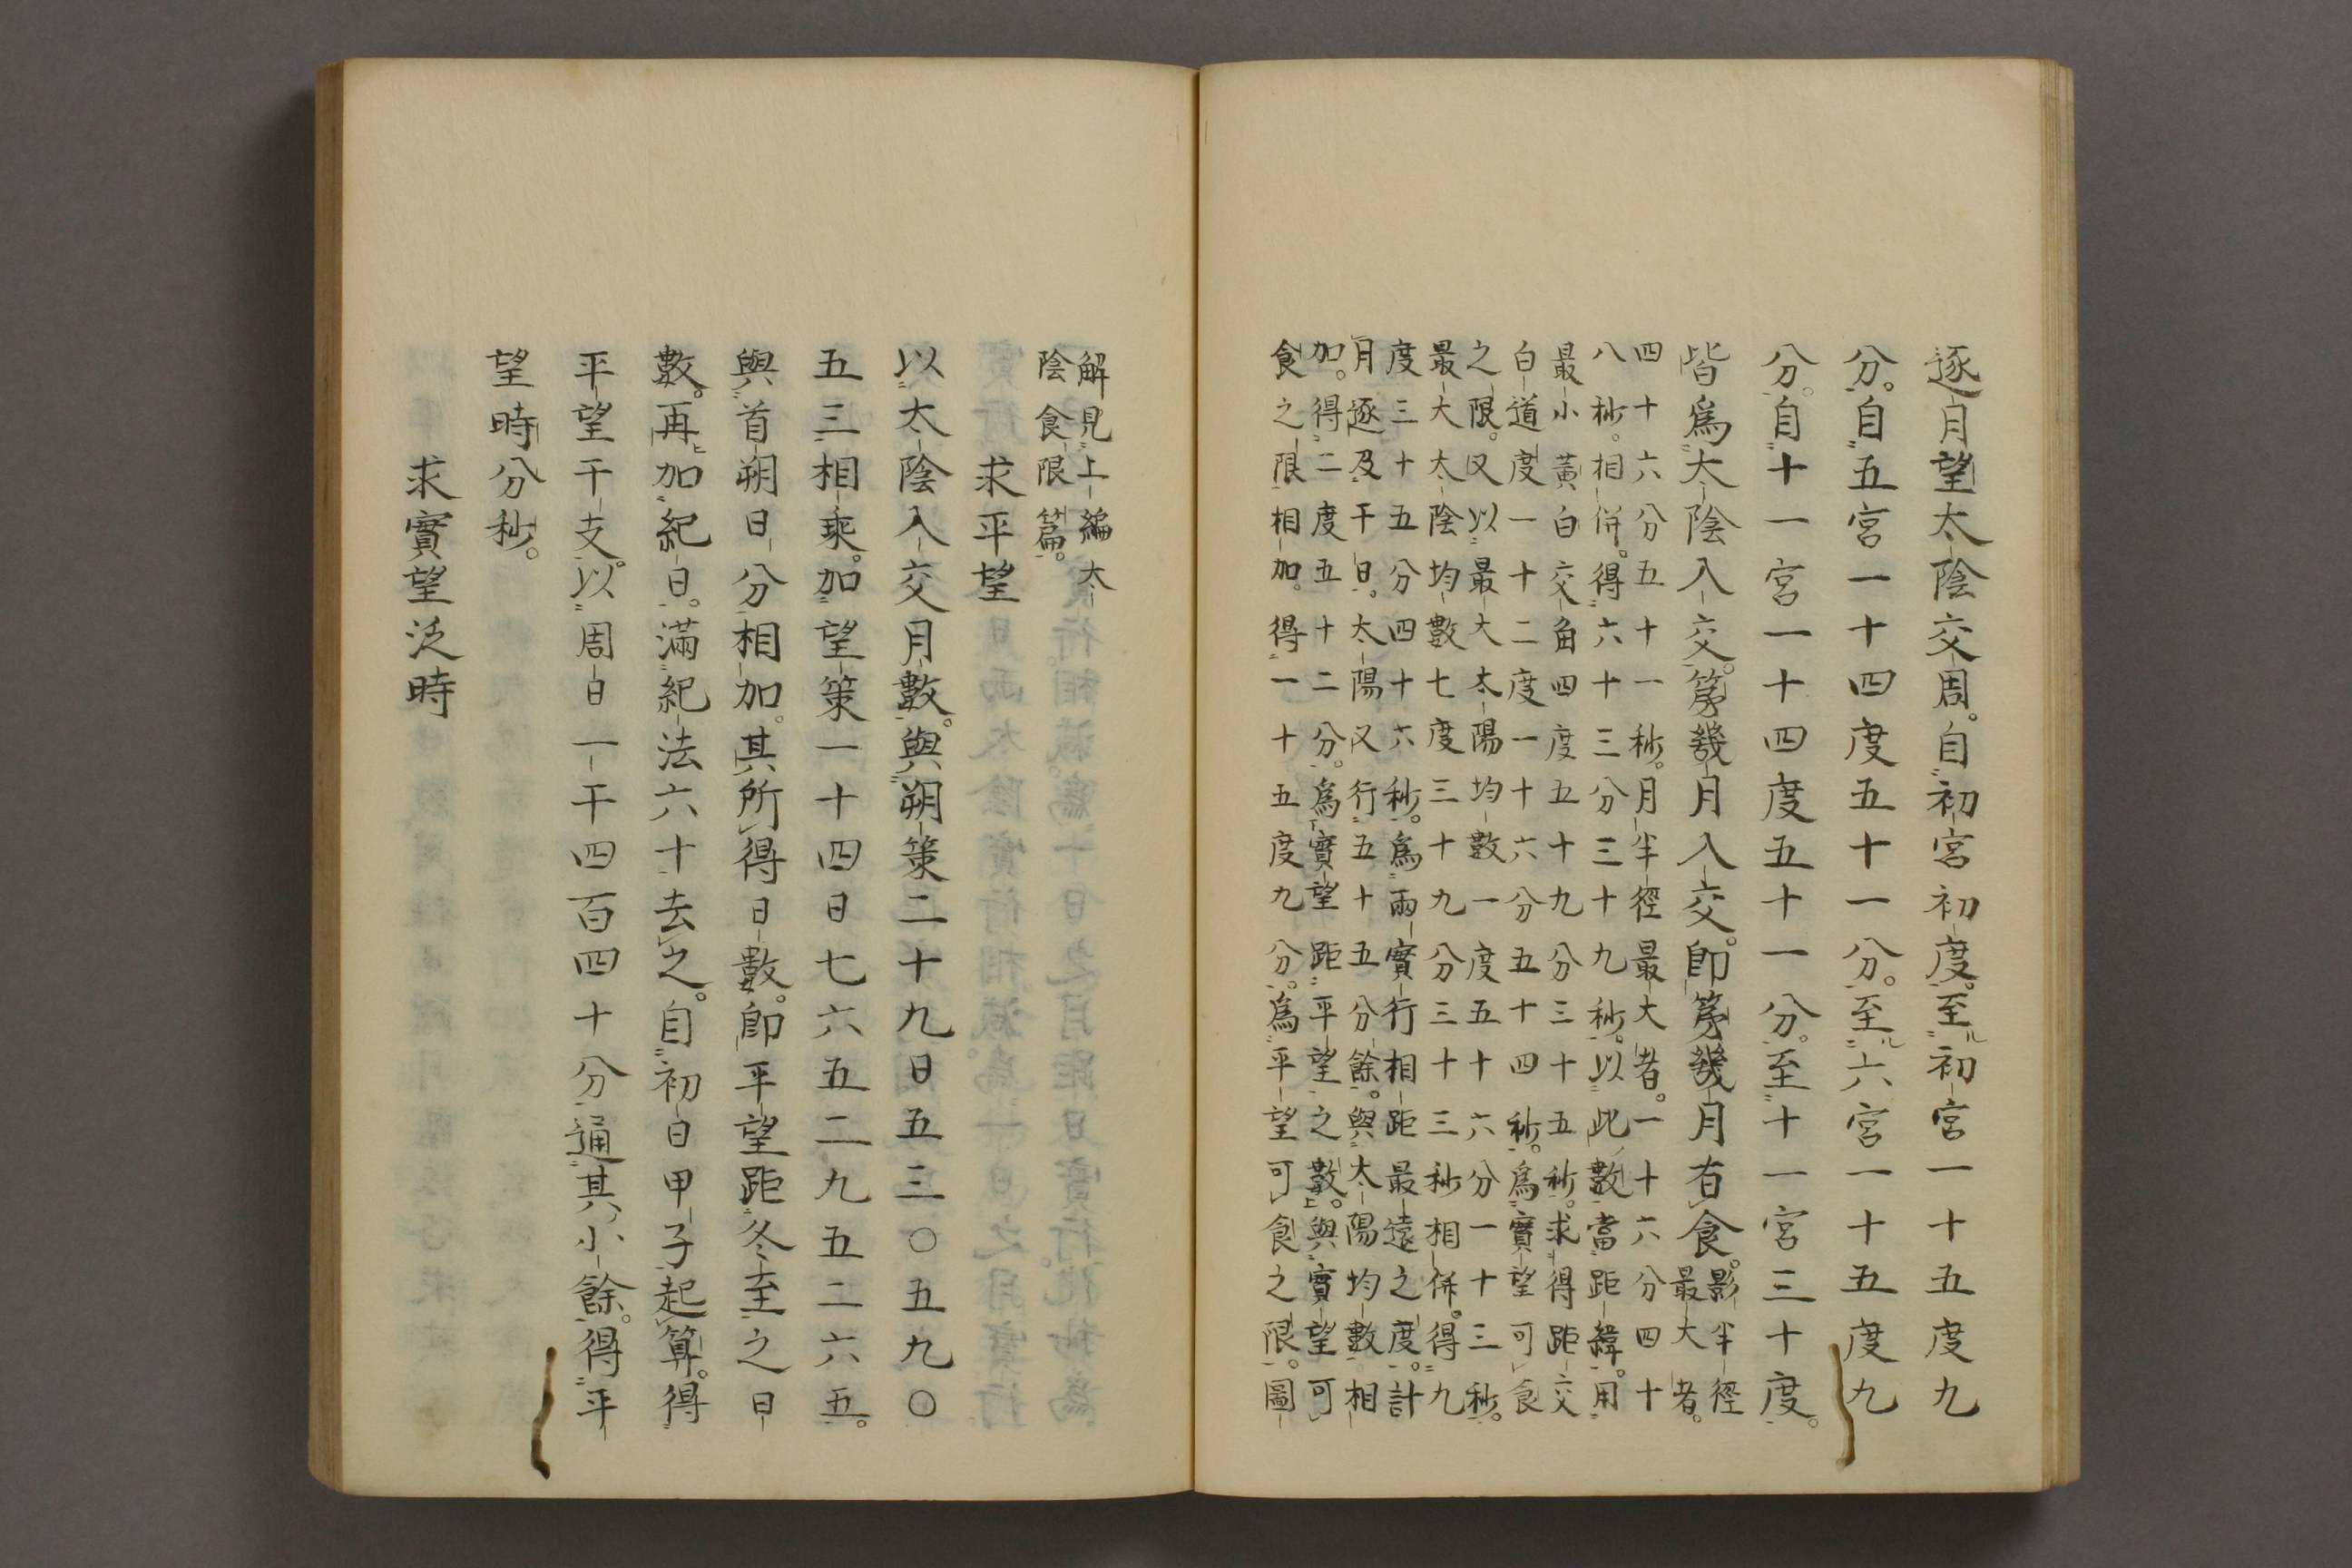 逐月望太陰交周。自初宮初度。至初宮一十五度九
分。自五宮一十四度五十一分。至六宮一十五度九
分。自十一宮一十四度五十一分。至十一宮三十度。
皆爲太陰入交。第幾月入交。卽第幾月有食。
影半徑
最大者。
四十六分五十一秒。月半徑最大者。一十六分四十
八秒。相併。得六十三分三十九秒。以此數當距緯。用
最小黃白交角四度五十九分三十五秒。求得距交
白道度一十二度一十六分五十四秒。爲實望可食
之限。又以最大太陽均數一度五十六分一十三秒。
最大太陰均數七度三十九分三十三秒相併。得九
度三十五分四十六秒。爲兩實行相距最遠之度。計
月逐及干日。太陽又行五十五分餘。與太陽均數相
加。得二度五十二分。爲實望距平望之數。與實望可
食之限相加。得一十五度九分。爲平望可食之限。圖
解見上編太
陰食限篇。
求平望
以太陰入交月數。與朔策二十九日五三〇五九〇
五三相乘。加望策一十四日七六五二九五二六五。
與首朔日分相加。其所得日數。卽平望距冬至之日
數。再加紀日。滿紀法六十去之。自初日甲子起算。得
平望干支。以周日一千四百四十分通其小餘。得平
望時分秒。
求實望泛時